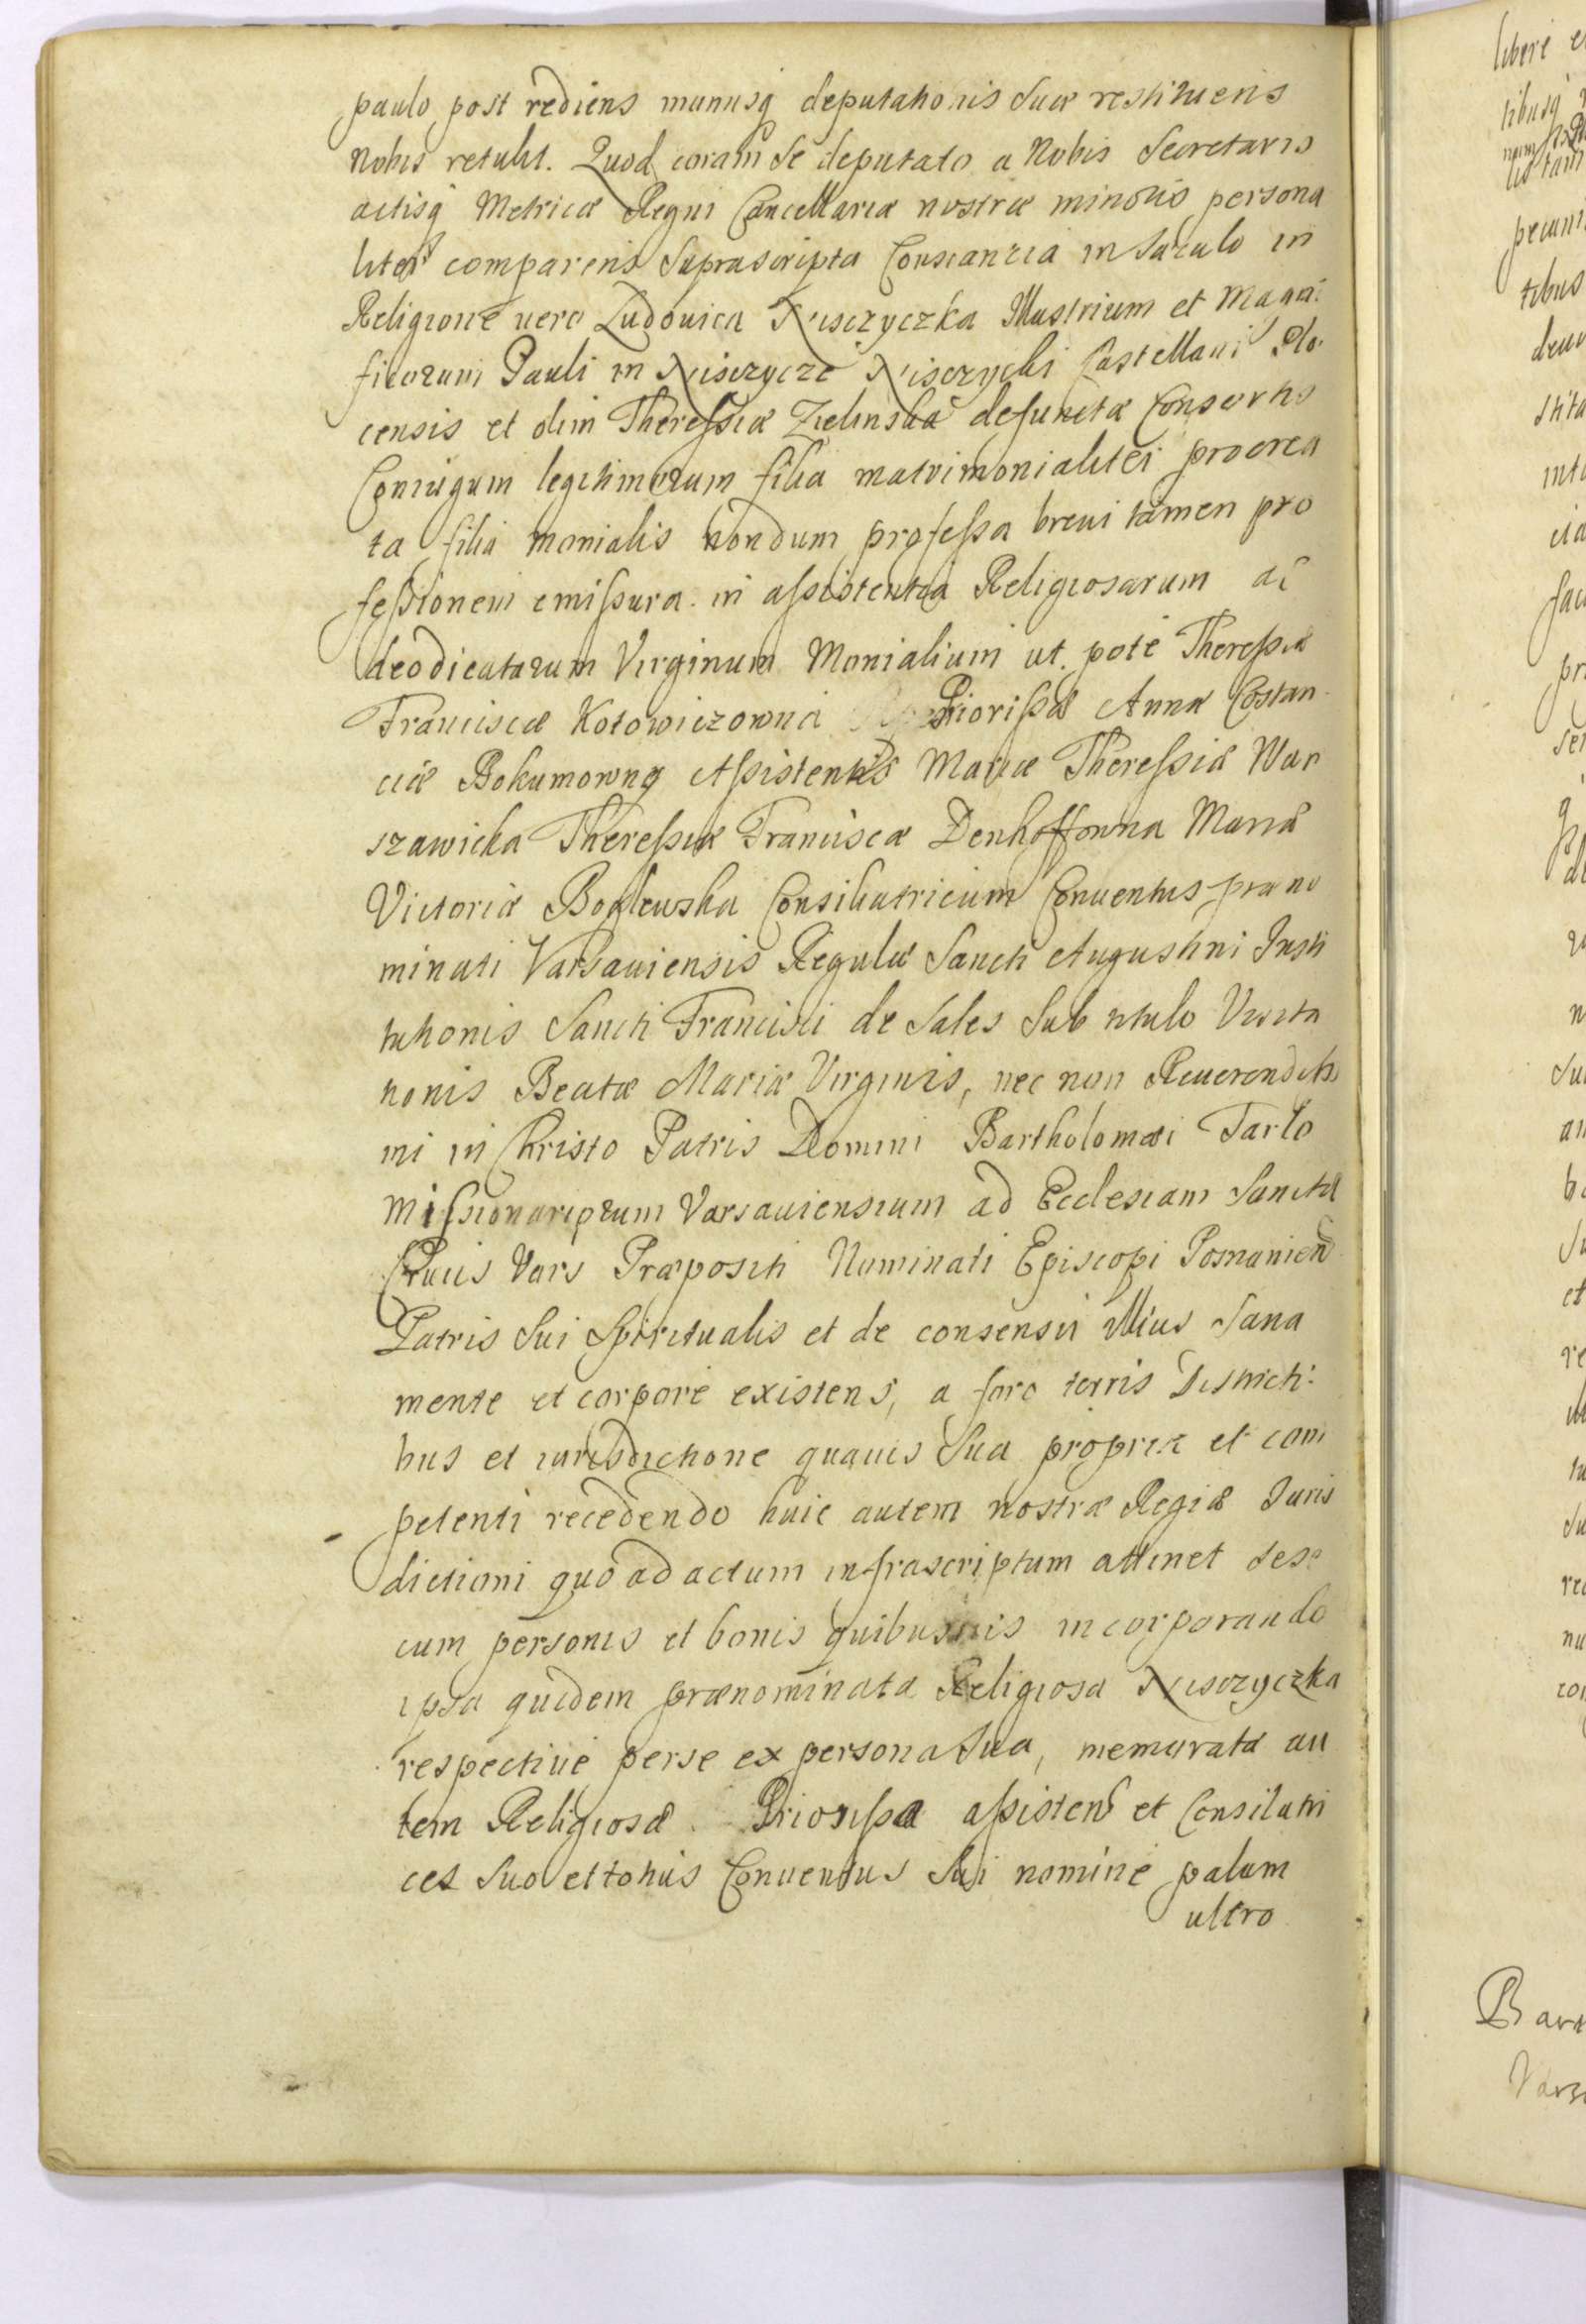 paulo post rediens munusq deputationis suæ restituens
Nobis retulit. Quod coram se deputato a Nobis Secretario
actisq Metricæ Regni Cancellariæ nostræ minoris persona
liter comparens suprascripta Constantia in sæculo in
Religione vero Ludovica Nisczyczka Illustrium et Magni:
ficorum Pauli in Nisczyce Nisczycki Castellani Plo:
censis et olim Theressiæ Zielinska defunctæ Consortis
Coniugum legitimorum filia matrimonialiter procrea
ta filia monialis nondum professa brevi tamen pro
fessionem emissura in assistentia Religiosarum ac
deodicatarum Virginum Monialium ut pote Theressiæ
Franciscæ Kotowiczowna Priorissæ Annæ Costan
ciæ Bokumowny Assistentis Mariæ Theressiæ War
szawicka Theressiæ Franciscæ Denhoffowna Mariæ
Victoriæ Boglewska Consiliatricum Conventus præno
minati Varsaviensis Regulæ Sancti Augustini Insti
tutionis Sancti Francisci de Sales sub titulo Visita
tionis Beatæ Mariæ Virginis, nec non Reverendissi
mi in Christo Patris Domini Bartholomæi Tarlo
Missionariorum Varsaviensium ad Ecclesiam Sanctæ
Crucis Vars Præpositi Nominati Episcopi Posnanien
Patris sui Spiritualis et de consensu illius sana
mente et corpore existens, a foro terris Districti:
bus et iurisdictione quavis sua propria et com
petenti recedendo huic autem nostræ Regiæ Juris
dictioni quo ad actum infrascriptum attinet sese
cum personis et bonis quibusvis incorporando
ipsa quidem prænominata Religiosa Nisczyczka
respective per se ex persona sua, memorata au
tem Religiosæ Priorissa assistens et Consiliatri
ces suo et totius Conventus sui nomine palam
ultro